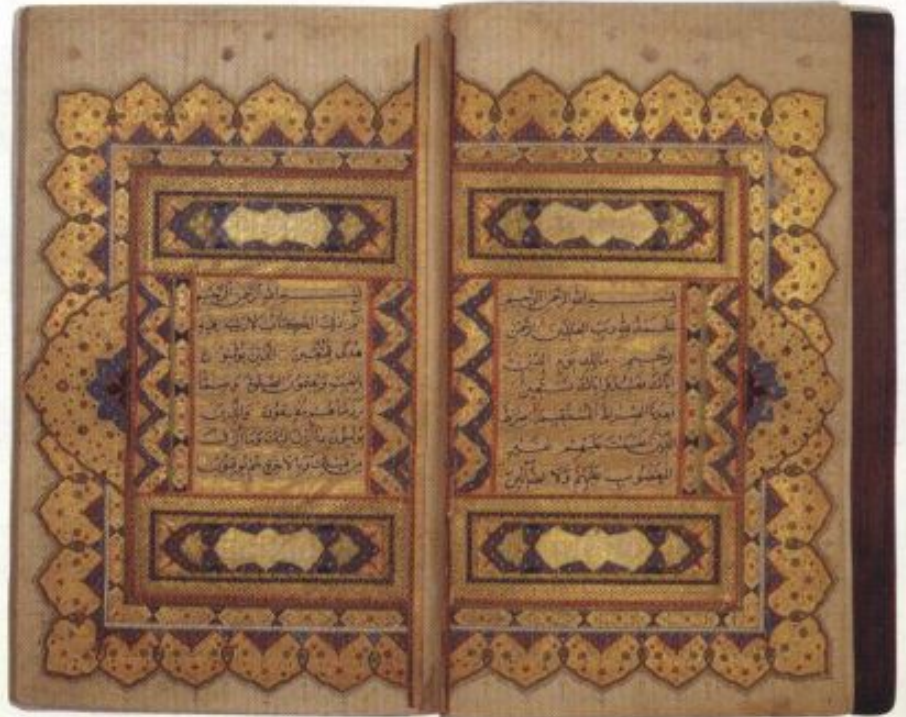 بسم الله الرحمن الرحيم
الحمد لله رب العالمين الرحمن
الرحيم مالك يوم الدين
اياك نعبد و اياك نستعين
اهدنا الصراط المستقيم صراط
الذين انعمت عليهم غير
المغضوب عليهم ولا الضالين
بسم الله الرحمن الرحيم
الم ذلك الكتاب لا ريب فيه
هدى للمتقين الذين يؤمنون
بالغيب ويقيمون الصلوة و مما
رزقناهم ينفقون والذين
يؤمنون بما انزل اليك وما انزل
من قبلك وبالاخرة هم يوقنون